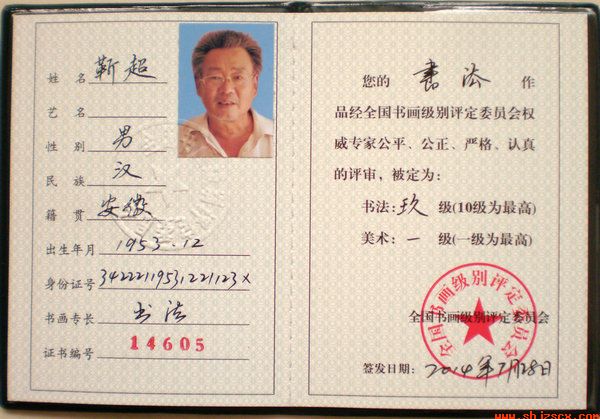 姓 名 靳超
艺 名
性 别 男
民 族 汉
籍 贯 安徽
出生年月 1953.12
身份证号 34222119531221123X
书画专长 书法
证书编号 14605
您的 書法 作
品经全国书画级别评定委员会权
威专家公平、公正、严格、认真
的评审，被定为：
书法：玖 级(10级为最高)
美术：一 级(一级为最高)
全国书画级别评定委员会
全国书画级别评定委员会
签发日期：2014年7月28日
www.shjzscx.com